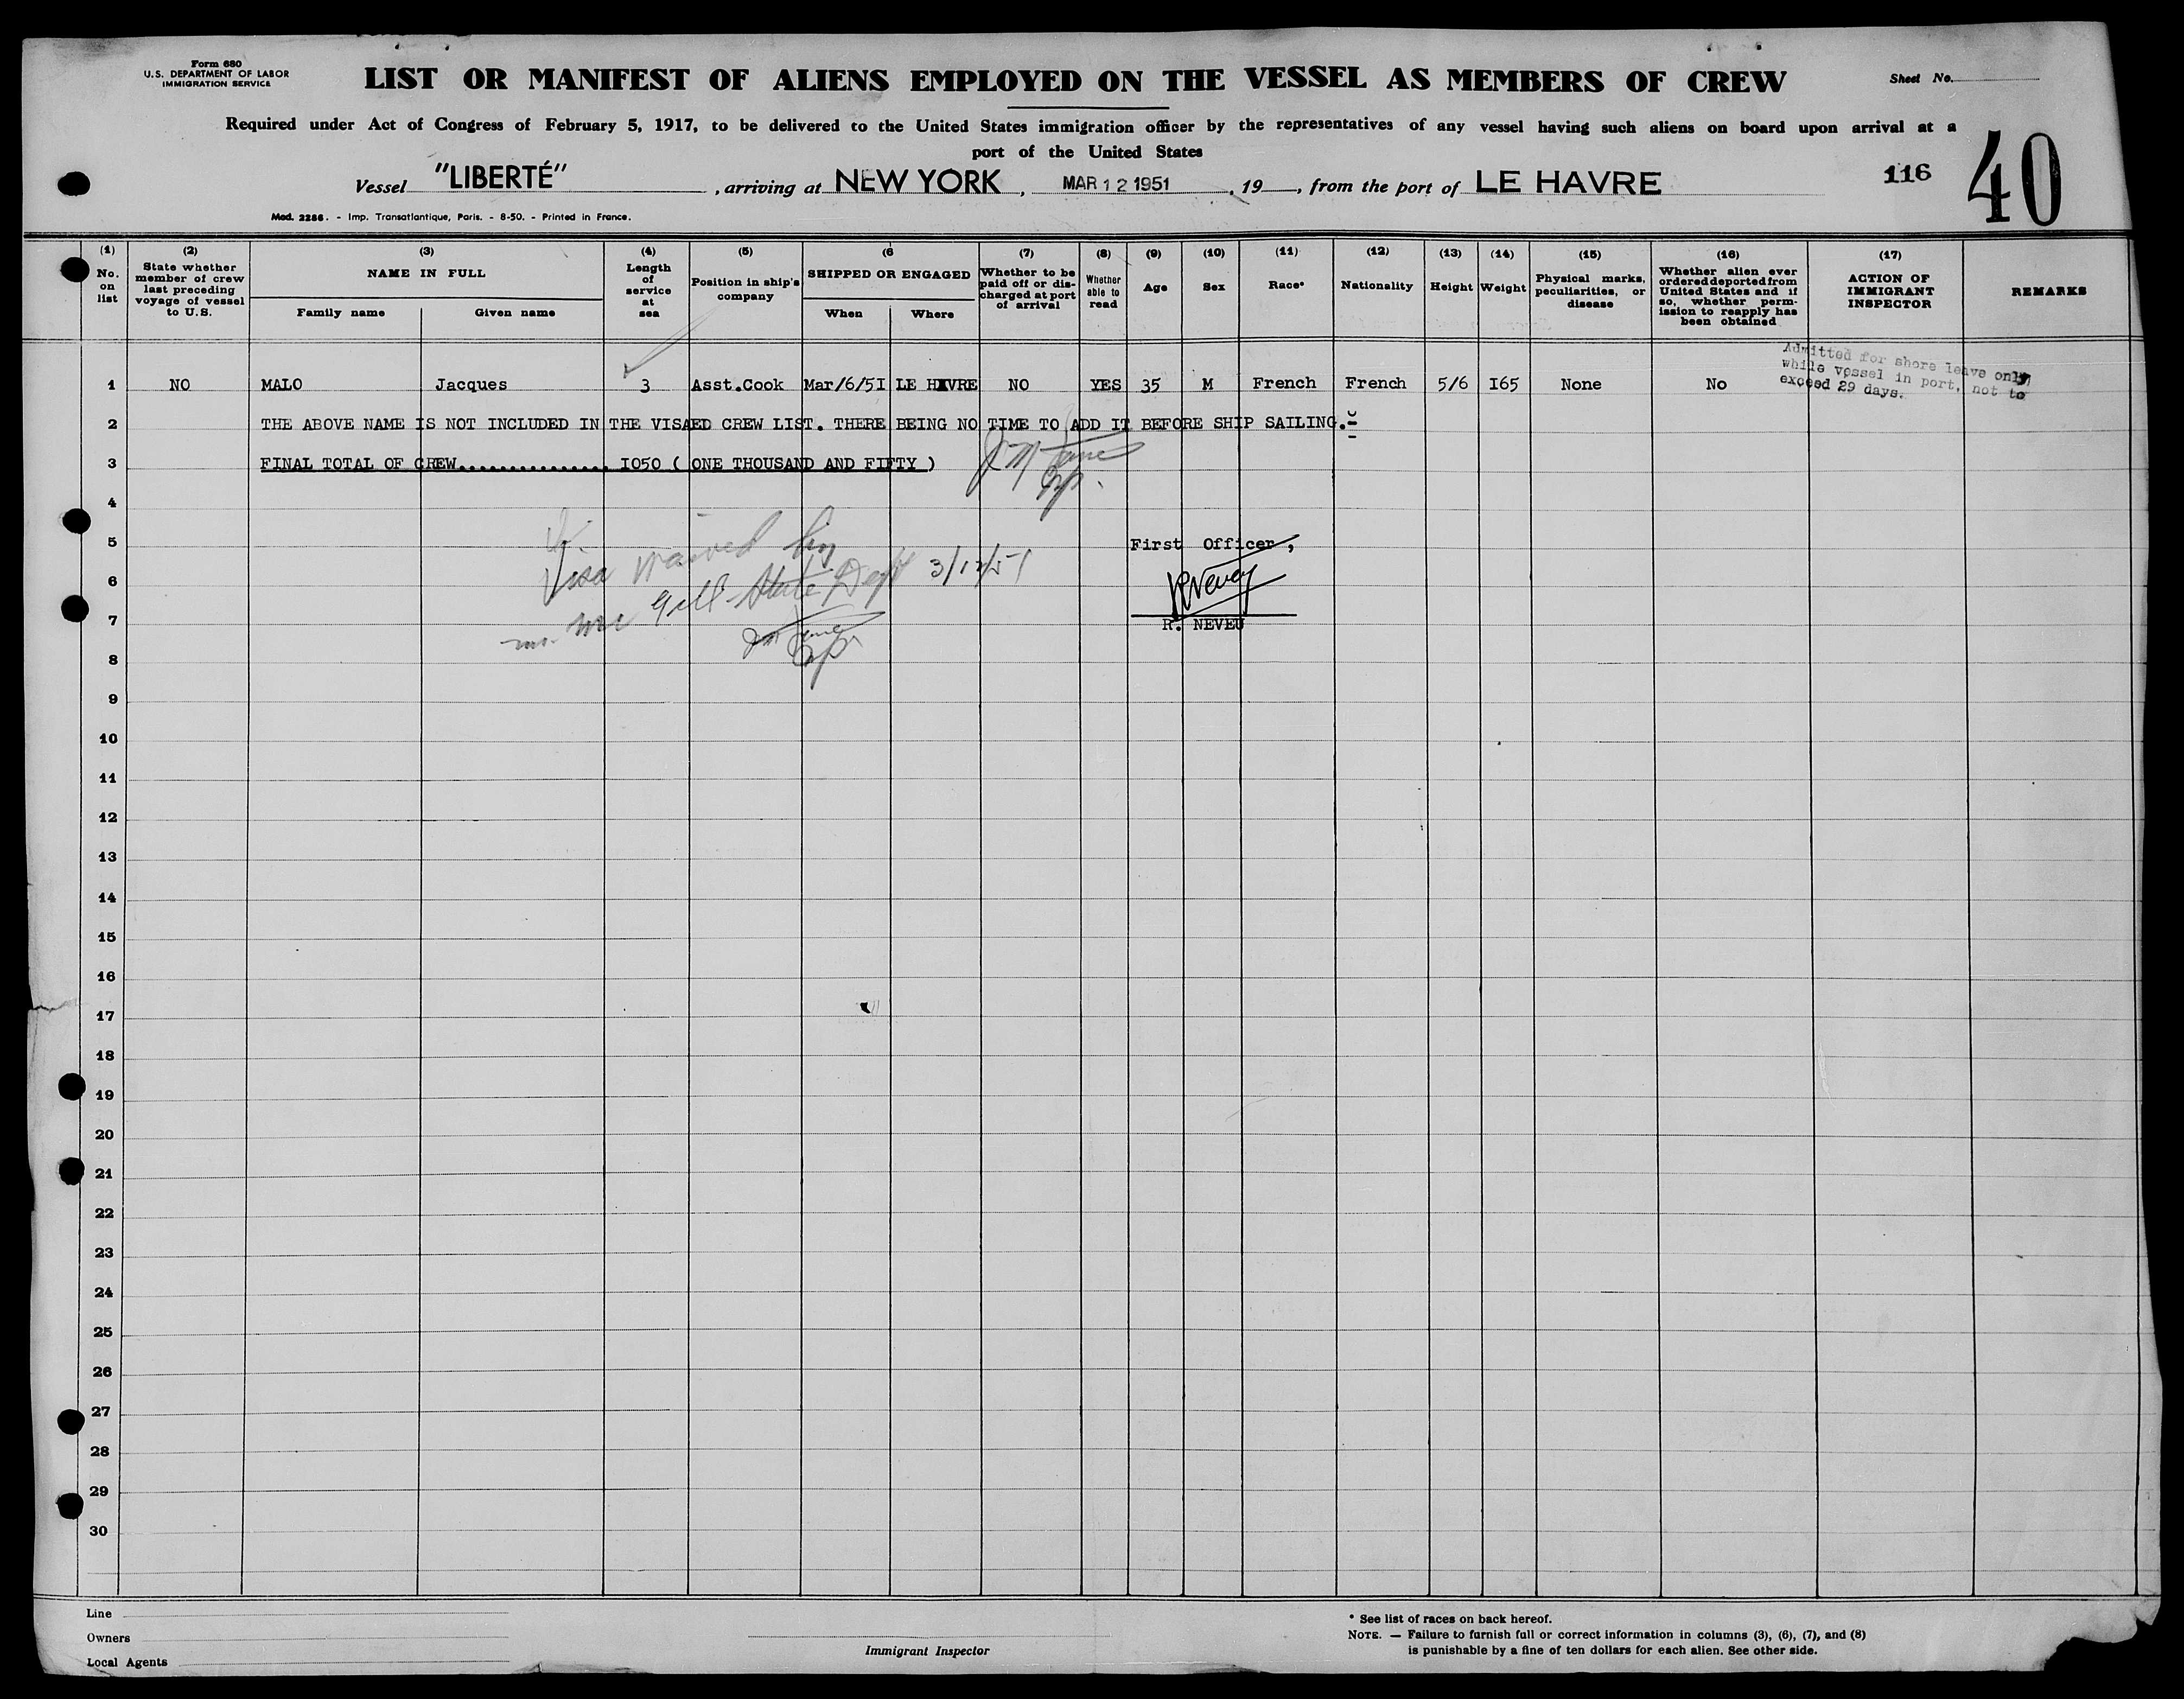 Form 680
U.S. DEPARTMENT OF LABOR
IMMIGRATION SERVICE
LIST OR MANIFEST OF ALIENS EMPLOYED ON THE VESSEL AS MEMBERS OF CREW
Sheet No.
Required under Act of Congress of February 5, 1917, to be delivered to the United States immigration officer by the representatives of any vessel having such aliens on board upon arrival at a
port of the United States
Vessel "LIBERTÉ" , arriving at NEW YORK , MAR 12 1951 , 19 , from the port of LE HAVRE
116
40
Mod. 2286. - Imp. Transatlantique, Paris. - 8-50. - Printed in France.
(1) No. on list
(2) State whether member of crew last preceding voyage of vessel to U.S.
(3) NAME IN FULL
Family name
Given name
(4) Length of service at sea
(5) Position in ship's company
(6 SHIPPED OR ENGAGED
When
Where
(7) Whether to be paid off or dis-charged at port of arrival
(8) Whether able to read
(9) Age
(10) Sex
(11) Race*
(12) Nationality
(13) Height
(14) Weight
(15) Physical marks, peculiarities, or disease
(16) Whether alien ever ordered deported from United States and if so, whether perm-ission to reapply has been obtained
(17) ACTION OF IMMIGRANT INSPECTOR
REMARKS
1 NO MALO Jacques 3 Asst.Cook Mar/6/5I LE HAVRE NO YES 35 M French French 5/6 I65 None No
Admitted for shore leave only
while vessel in port, not to
exceed 29 days.
2 THE ABOVE NAME IS NOT INCLUDED IN THE VISAED CREW LIST. THERE BEING NO TIME TO ADD IT BEFORE SHIP SAILING.
3 FINAL TOTAL OF CREW................ I050 ( ONE THOUSAND AND FIFTY )
4
5 First Officer,
Visa waived by
6 Gill State Dept 3/12/51
7 R. NEVEU
8
9
10
11
12
13
14
15
16
17
18
19
20
21
22
23
24
25
26
27
28
29
30
Line
Owners
Local Agents
Immigrant Inspector
* See list of races on back hereof.
NOTE. — Failure to furnish full or correct information in columns (3), (6), (7), and (8)
is punishable by a fine of ten dollars for each alien. See other side.